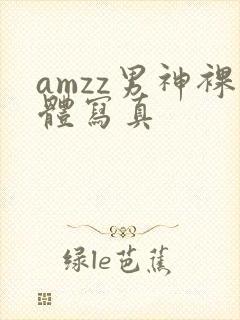 amzz男神裸
體寫真
绿le芭蕉